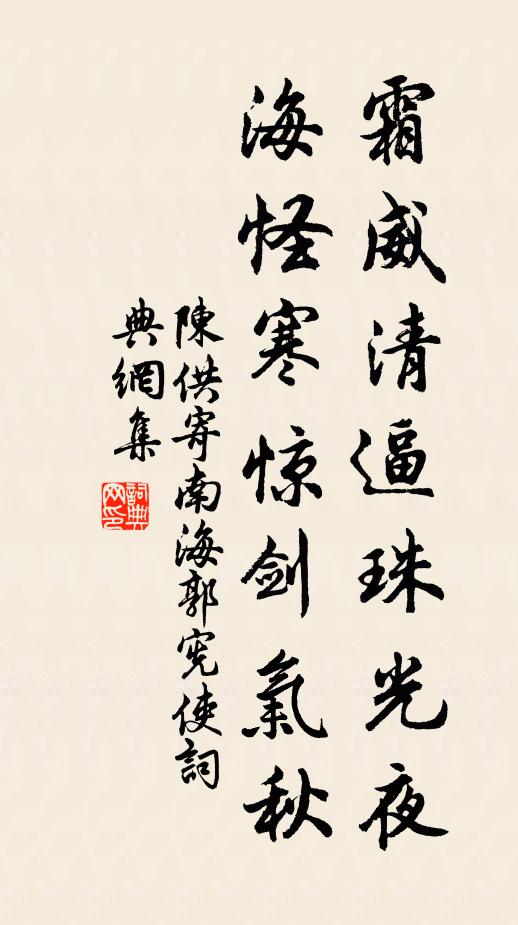 霜威清逼珠光夜
海怪寒惊剑氣秋
陳供寄南海郭宪使詞
典網集
詞典
网印